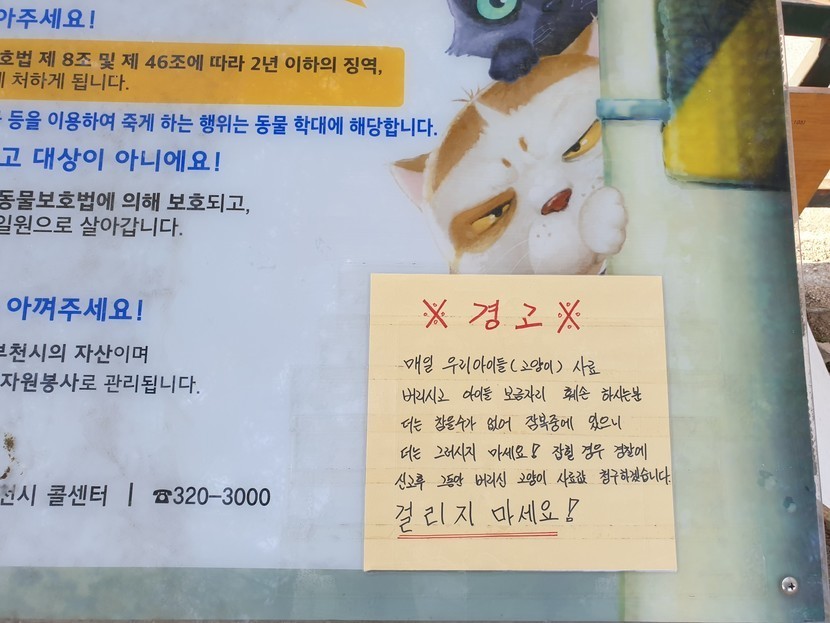 아주세요!
호법 제 8조 및 제 46조에 따라 2년 이하의 징역,
처하게 됩니다.
등을 이용하여 죽게 하는 행위는 동물 학대에 해당합니다.
고 대상이 아니에요!
동물보호법에 의해 보호되고,
일원으로 살아갑니다.
아껴주세요!
부천시의 자산이며
자원봉사로 관리됩니다.
천시 콜센터 | ☎320-3000
※ 경고 ※
매일 우리아이들(고양이) 사료
버리시고 아이들 보금자리 훼손 하시는분
더는 참을수가 없어 잠복중에 있으니
더는 그러시지 마세요! 잡힐 경우 경찰에
신고후 그동안 버리신 고양이 사료값 청구하겠습니다.
걸리지 마세요!